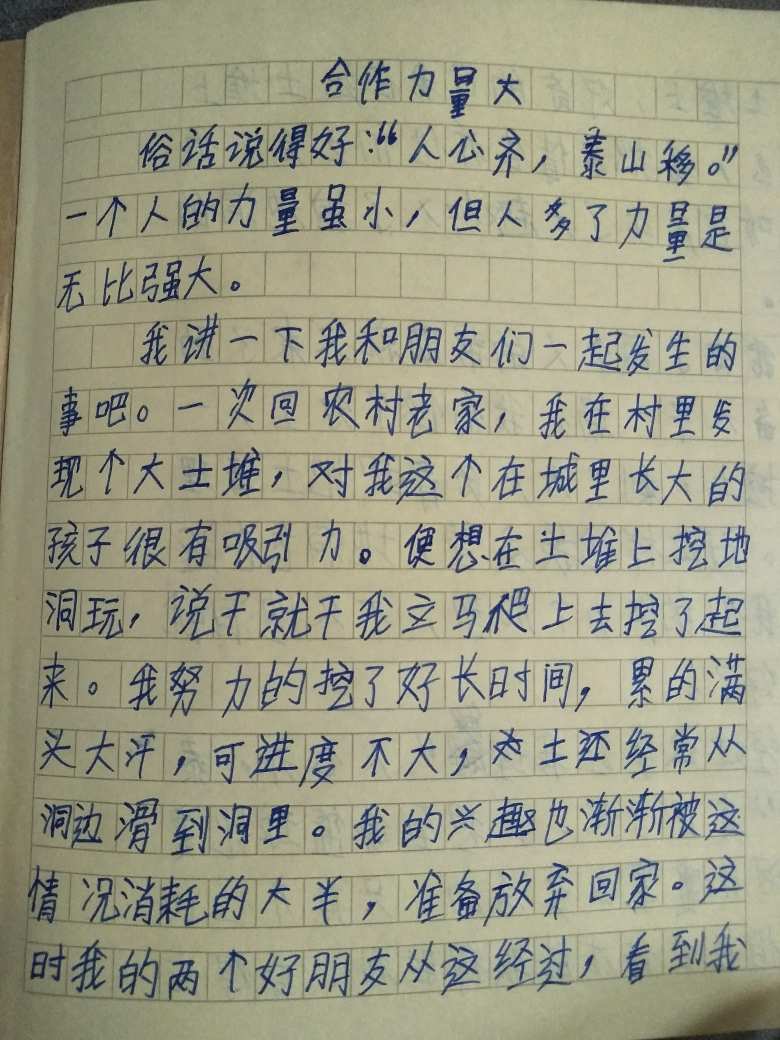 合作力量大
俗话说得好:“人心齐,泰山移。”
一个人的力量虽小,但人多了力量是
无比强大。
我讲一下我和朋友们一起发生的
事吧。一次回农村老家,我在村里发
现个大土堆,对我这个在城里长大的
孩子很有吸引力。便想在土堆上挖地
洞玩,说干就干我立马爬上去挖了起
来。我努力的挖了好长时间,累的满
头大汗,可进度不大,土还经常从
洞边滑到洞里。我的兴趣也渐渐被这
情况消耗的大半,准备放弃回家。这
时我的两个好朋友从这经过,看到我